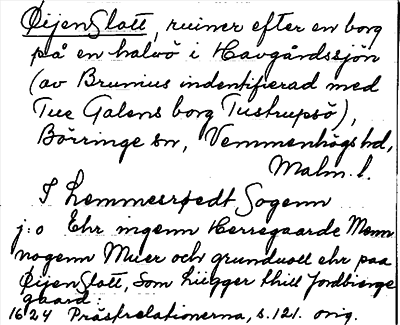 ØijenSlatt, ruiner efter en borg
på en halvö i Havgårdssjön
(av Brunius indentifierad med
Tue Galens borg Tustrupsö),
Börringe sn, Vemmenhögs hd,
Malm. l.
I Lemmesrøedt Sogenn
j:o Ehr ingenn Herregaarde Menn
nogenn Muer och grunduoll ehr paa
ØijenSlatt, Som Liigger thill Jordbierge
gaard.
1624 Prästrelationerna, s. 121. orig.